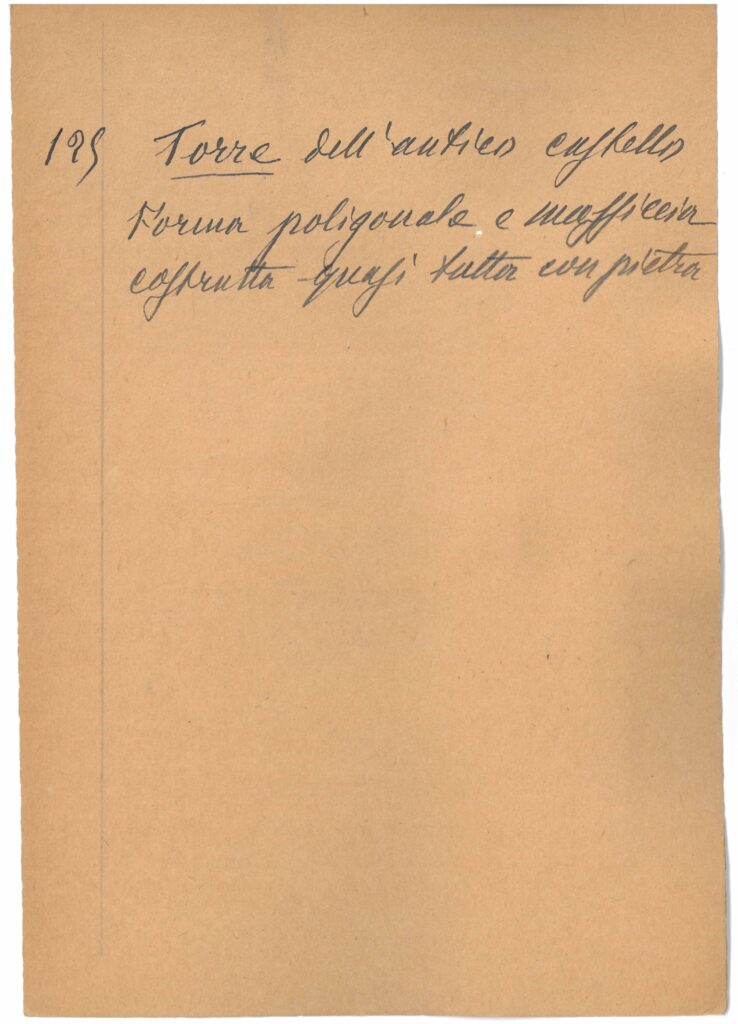 125 Torre dell'antico castello
Forma poligonale e massiccia
costrutta quasi tutta con pietra